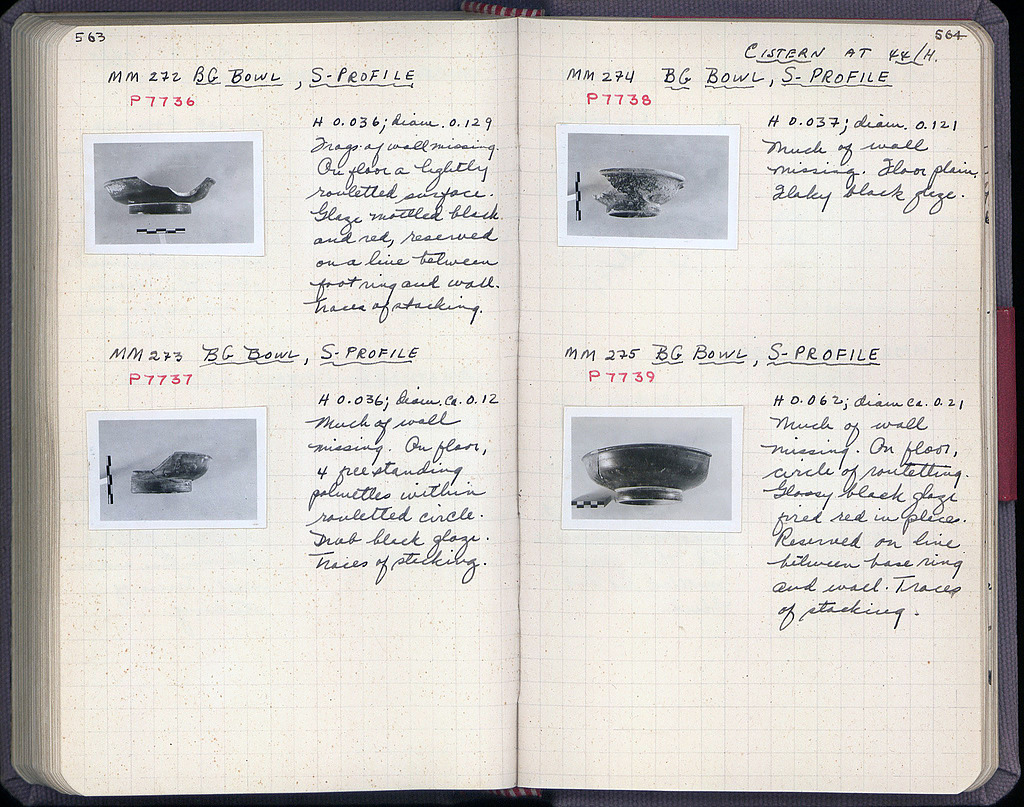 563
MM 272 BG BOWL, S-PROFILE
P7736
H 0.036; diam. 0.129
Frags. of wall missing.
On floor a lightly
rouletted surface.
Glaze mottled black
and red, reserved
on a line between
foot ring and wall.
Traces of stacking.
MM 273 BG BOWL, S-PROFILE
P7737
H 0.036; diam. ca. 0.12
Much of wall
missing. On floor,
4 free standing
palmettes within
rouletted circle.
Drab black glaze.
Traces of stacking.
564
CISTERN AT 44/H.
MM 274 BG BOWL, S-PROFILE
P7738
H 0.037; diam. 0.121
Much of wall
missing. Floor plain.
Flaky black glaze.
MM 275 BG BOWL, S-PROFILE
P7739
H 0.062; diam ca. 0.21
Much of wall
missing. On floor,
circle of rouletting.
Glossy black glaze
fired red in places.
Reserved on line
between base ring
and wall. Traces
of stacking.